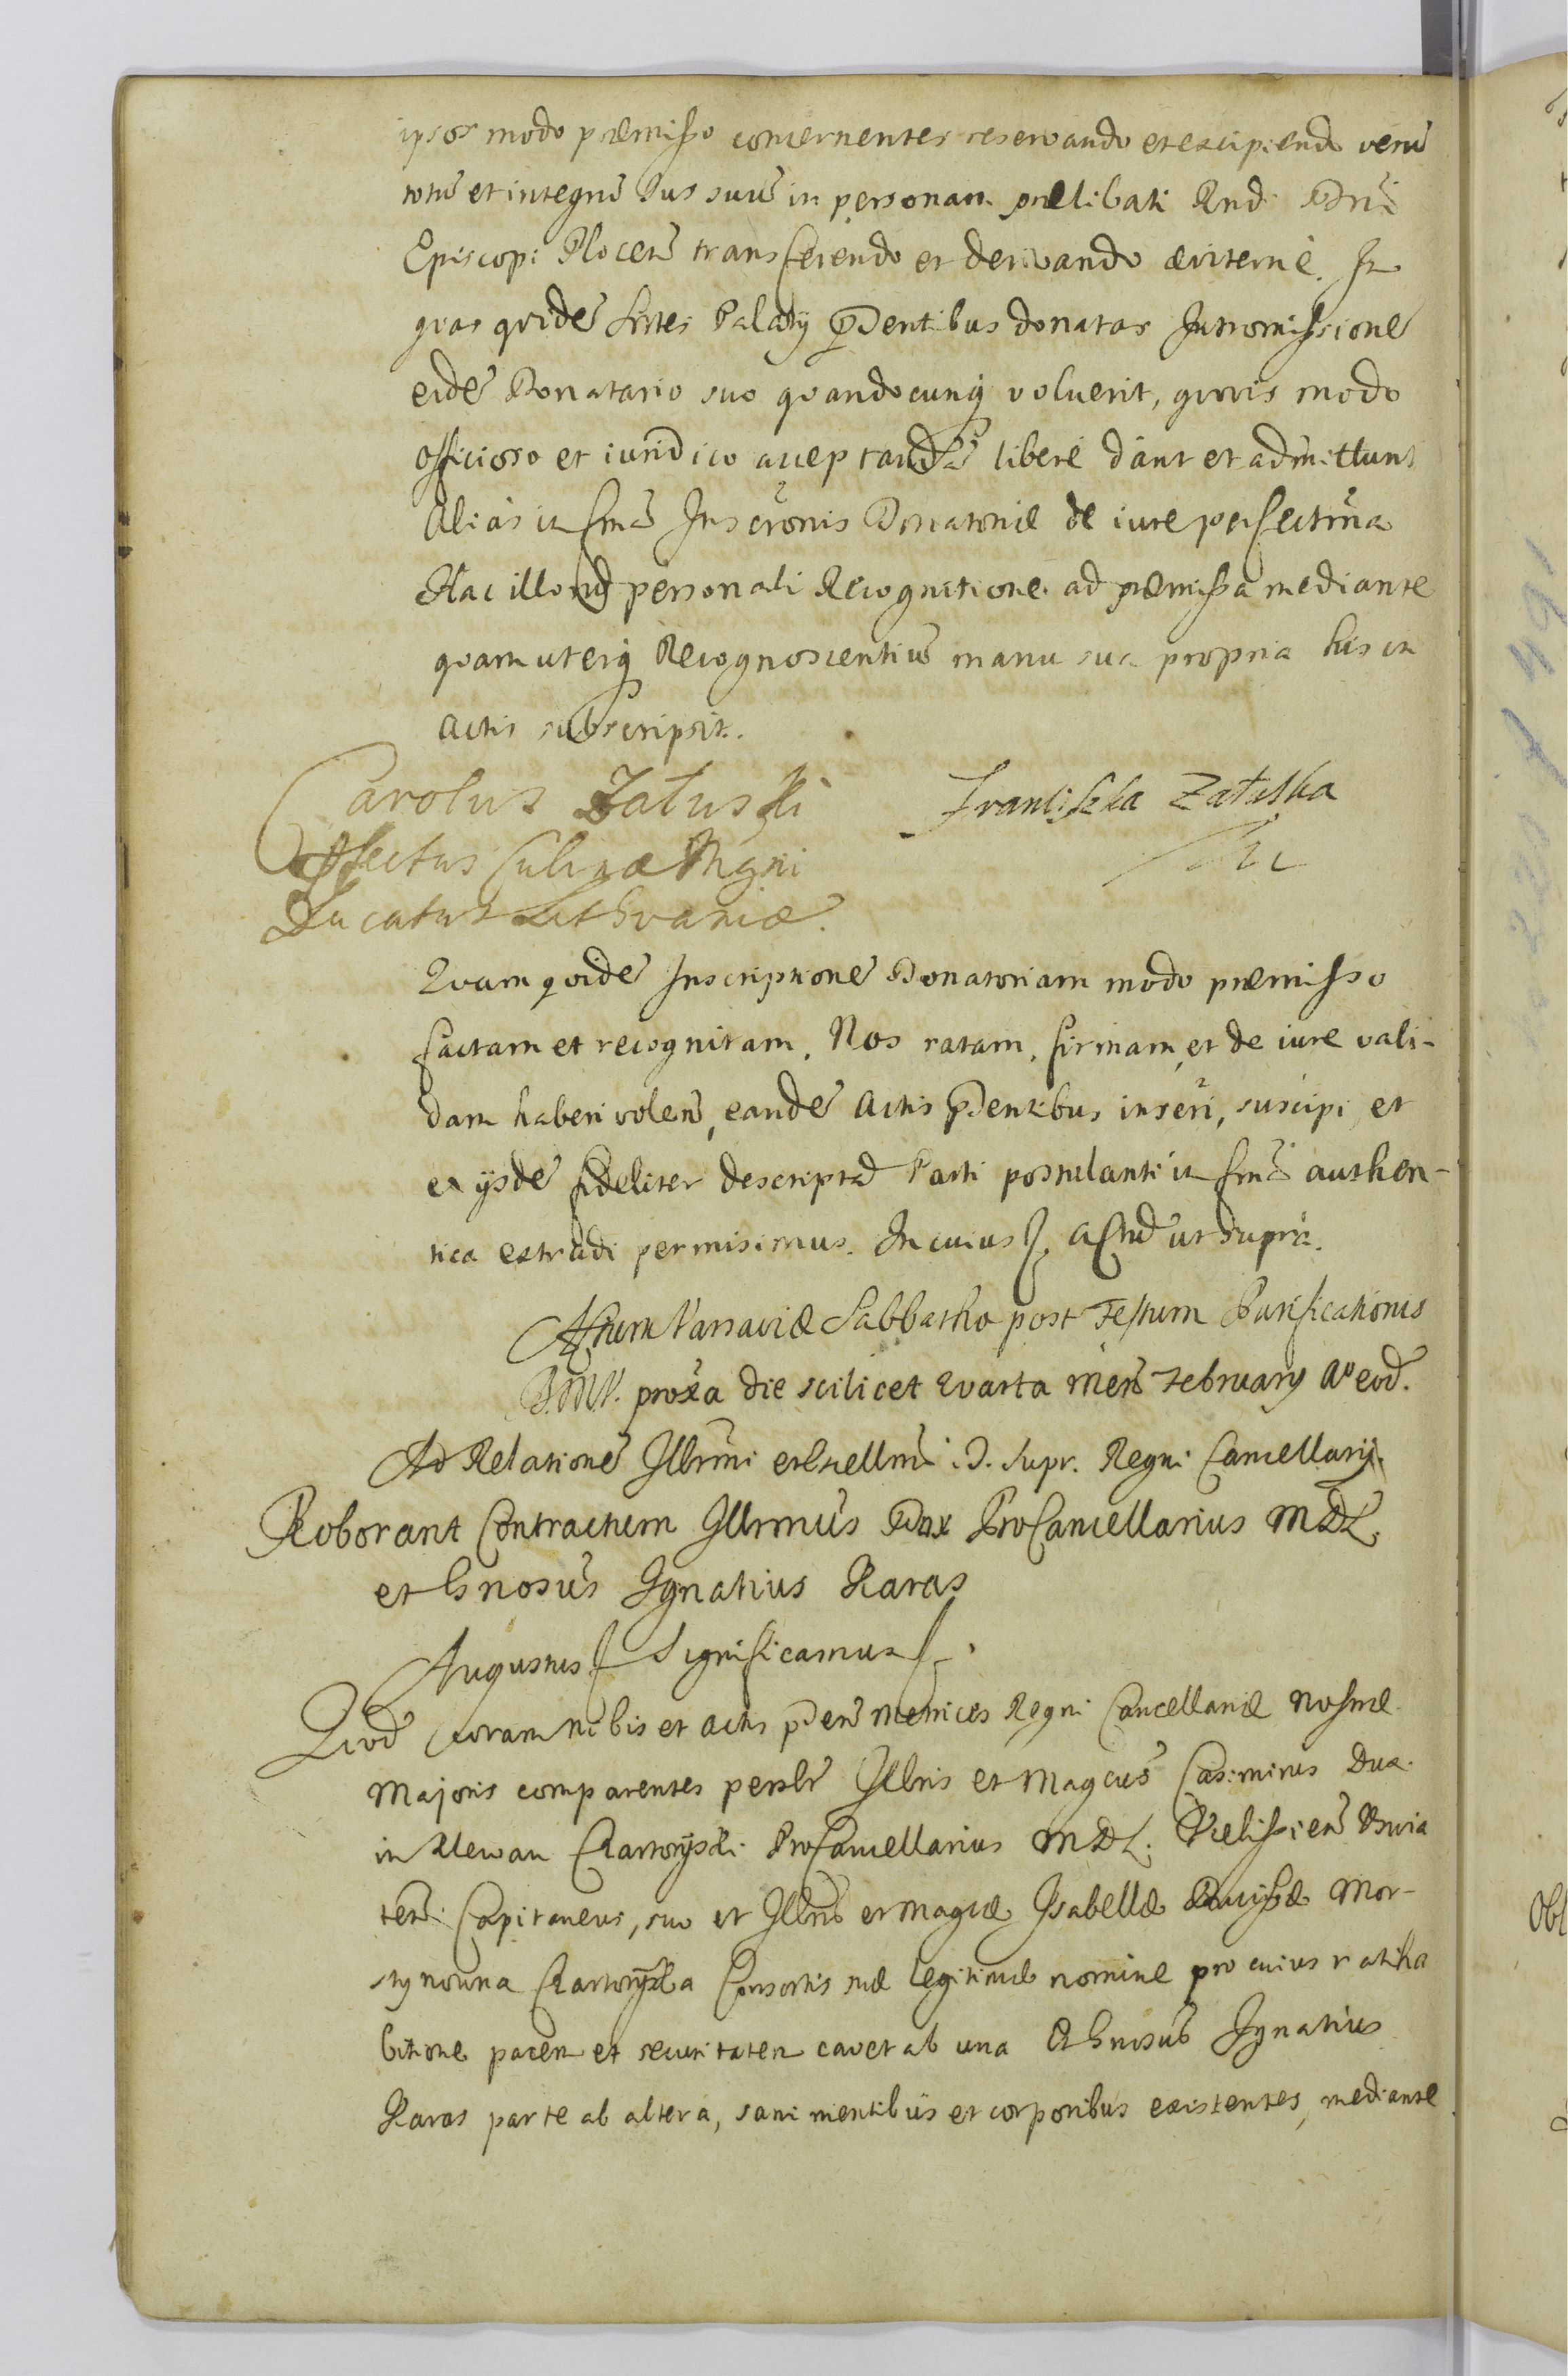 ipsos modo præmisso concernentes reservando et excipiendo verū
totū et integrū Jus suū in personam prælibati Rndi Dni
Episcopi Plocen transferendo et derivando æviternè. In
quas quidē Sortes Palatÿ pdentibus donatas Intromissionē
eidē Donatario suo quandocunq voluerit, quovis modo
officioso et iuridico acceptandā liberè dant et admittunt
Aliàs in fmā Inscronis Donatoriæ de iure perfectima
Hac illorū personali Recognitione ad præmissa mediante
quam uterq Recognoscentiū manu sua propria his in
Actis subscripsit.
Carolus Załuski
Præfectus Culinæ Magni
Ducatus Lithvaniæ.
Franciszka Załuska
Quam quidē Inscriptionē Donatoriam modo præmisso
factam et recognitam, Nos ratam, firmam, et de iure vali-
dam haberi volen, eandē Actis pdentibus inseri, suscipi, et
ex ijsdē fideliter descriptā Parti postulanti in fmā authen-
tica extradi permisimus. In cuius Actū ut supra.
Actum Varsaviæ Sabbatho post Festum Purificationis
B.M.V. proxa die scilicet Quarta mens Februarÿ Aº eod.
Ad Relationē Illrmi et Excellmi D. Supr. Regni Cancellarÿ.
Roborant Contractum Illrmus Dux ProCancellarius MDL.
et Gnosus Ignatius Karas
Augustus Significamus
Quod coram nobis et Actis pden Metrices Regni Cancellariæ nostræ
Majoris comparentes persoltr Illris et Magcus Casimirus Dux
in Klewan Czartoryski ProCancellarius MDL. Capitaneus, suo et Illris et Magcæ Isabellæ Ducissæ Mor-
stynowna Czartoryska Consortis suæ legitimæ nomine pro cuius ratiha
bitione pacem et securitatem cavet ab una Et Gnosus Ignatius
Karas parte ab altera, sani mentibus et corporibus existentes, mediante